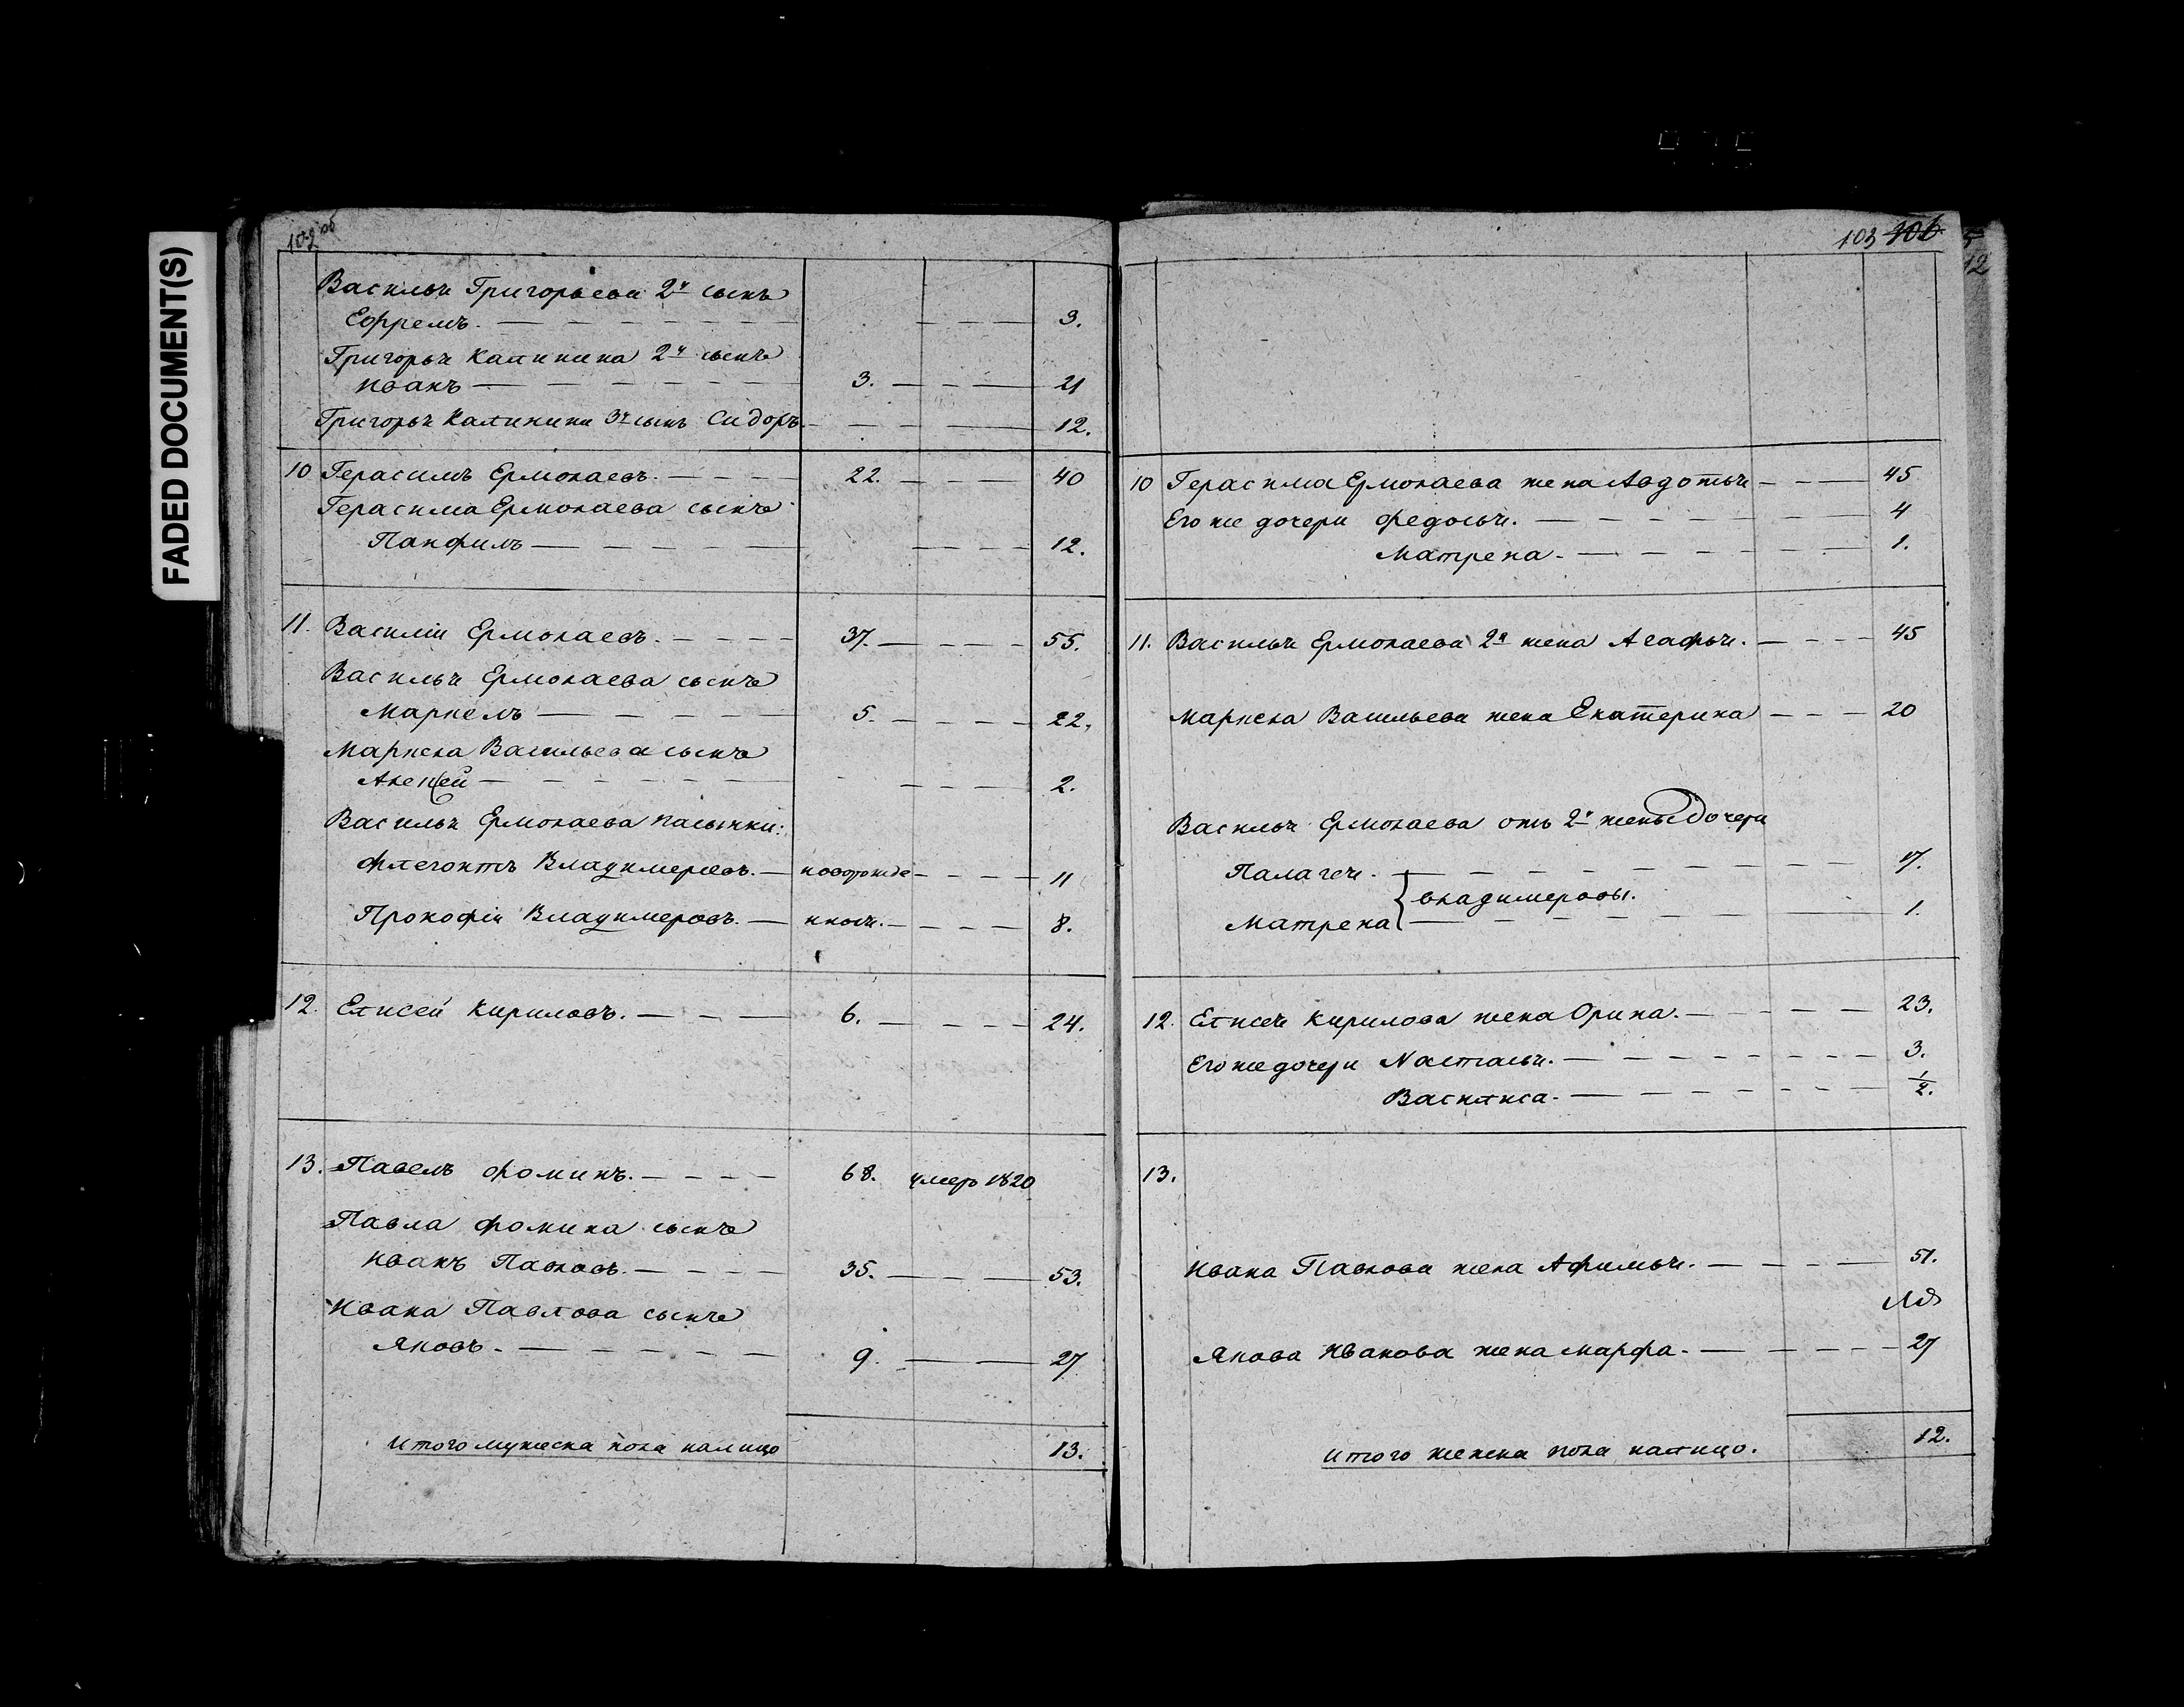 FADED DOCUMENT(S)
102 об
Василья Григорьева 2й сынъ
Ефремъ. 3.
Григорья Калинина 2й сынъ
Иванъ 3. 21
Григорья Калинина 3й сынъ Сидоръ. 12.
10 Герасимъ Ермолаевъ. 22. 40
Герасима Ермолаева сынъ
Панфилъ 12.
11. Василій Ермолаевъ. 37. 55.
Василья Ермолаева сынъ
Маркелъ 5. 22.
Маркела Васильева сынъ
Алексей 2.
Василья Ермолаева пасынки:
Флегонтъ Владимеровъ. новорожде 11
Прокофій Владимеровъ. нные. 8.
12. Елисей Кириловъ. 6. 24.
13. Павелъ Фоминъ. 68. умеръ 1820
Павла Фомина сынъ
Иванъ Павловъ. 35. 53.
Ивана Павлова сынъ
Яковъ. 9. 27
Итого мужеска пола налицо 13.
103 106
12
10 Герасима Ермолаева жена Авдотья 45
Его же дочери Федосья. 4
Матрена. 1.
11. Василья Ермолаева 2я жена Агафья. 45
Маркела Васильева жена Екатерина 20
Василья Ермолаева отъ 2й жены дочери
Палагея. 17.
владимеровы.
Матрена 1.
12. Елисея Кирилова жена Орина. 23.
Его же дочери Настасья. 3.
Василиса. 1/2.
13.
Ивана Павлова жена Афимья. 51.
Якова Иванова жена Марфа. 27
Итого женска пола налицо. 12.